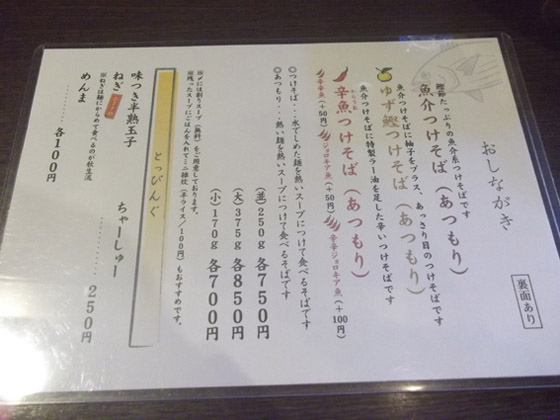 おしながき
裏面あり
鰹節たっぷりの魚介系つけそばです
魚介つけそば（あつもり）
魚介つけそばに柚子をプラス、あっさり目のつけそばです
ゆず鰹つけそば（あつもり）
魚介つけそばに特製ラー油を足した辛いつけそばです
辛魚つけそば（あつもり）
辛辛魚（＋50円）
ジョロキア魚（＋50円）
辛辛ジョロキア魚（＋100円）
◎つけそば・・水でしめた麺を熱いスープにつけて食べるそばです
◎あつもり・・熱い麺を熱いスープにつけて食べるそばです
（並）250g 各750円
（大）375g 各850円
（小）170g 各700円
※〆には割りスープ（無料）をご用意しております。
※残ったスープにごはんを入れてミニ雑炊（半ライス／100円）もおすすめです。
とっぴんぐ
味つき半熟玉子
ねぎ
※ねぎは麺にからめて食べるのが秋生流
めんま
各100円
ちゃーしゅー
250円